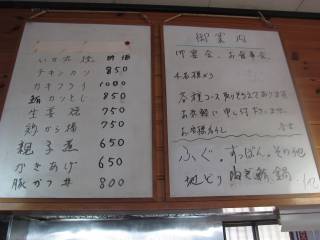 いか丸焼 時価
チキンカツ 850
カキフライ 1000
カツとじ 850
生姜焼 750
鶏から揚 750
親子煮 650
かきあげ 650
豚カツ丼 800
御案内
御宴会、お食事会
4名様より
各種コース取りそろえております
お気軽に申し付け下さい。
ふぐ。すっぽん。その他
地どり 鍋 他